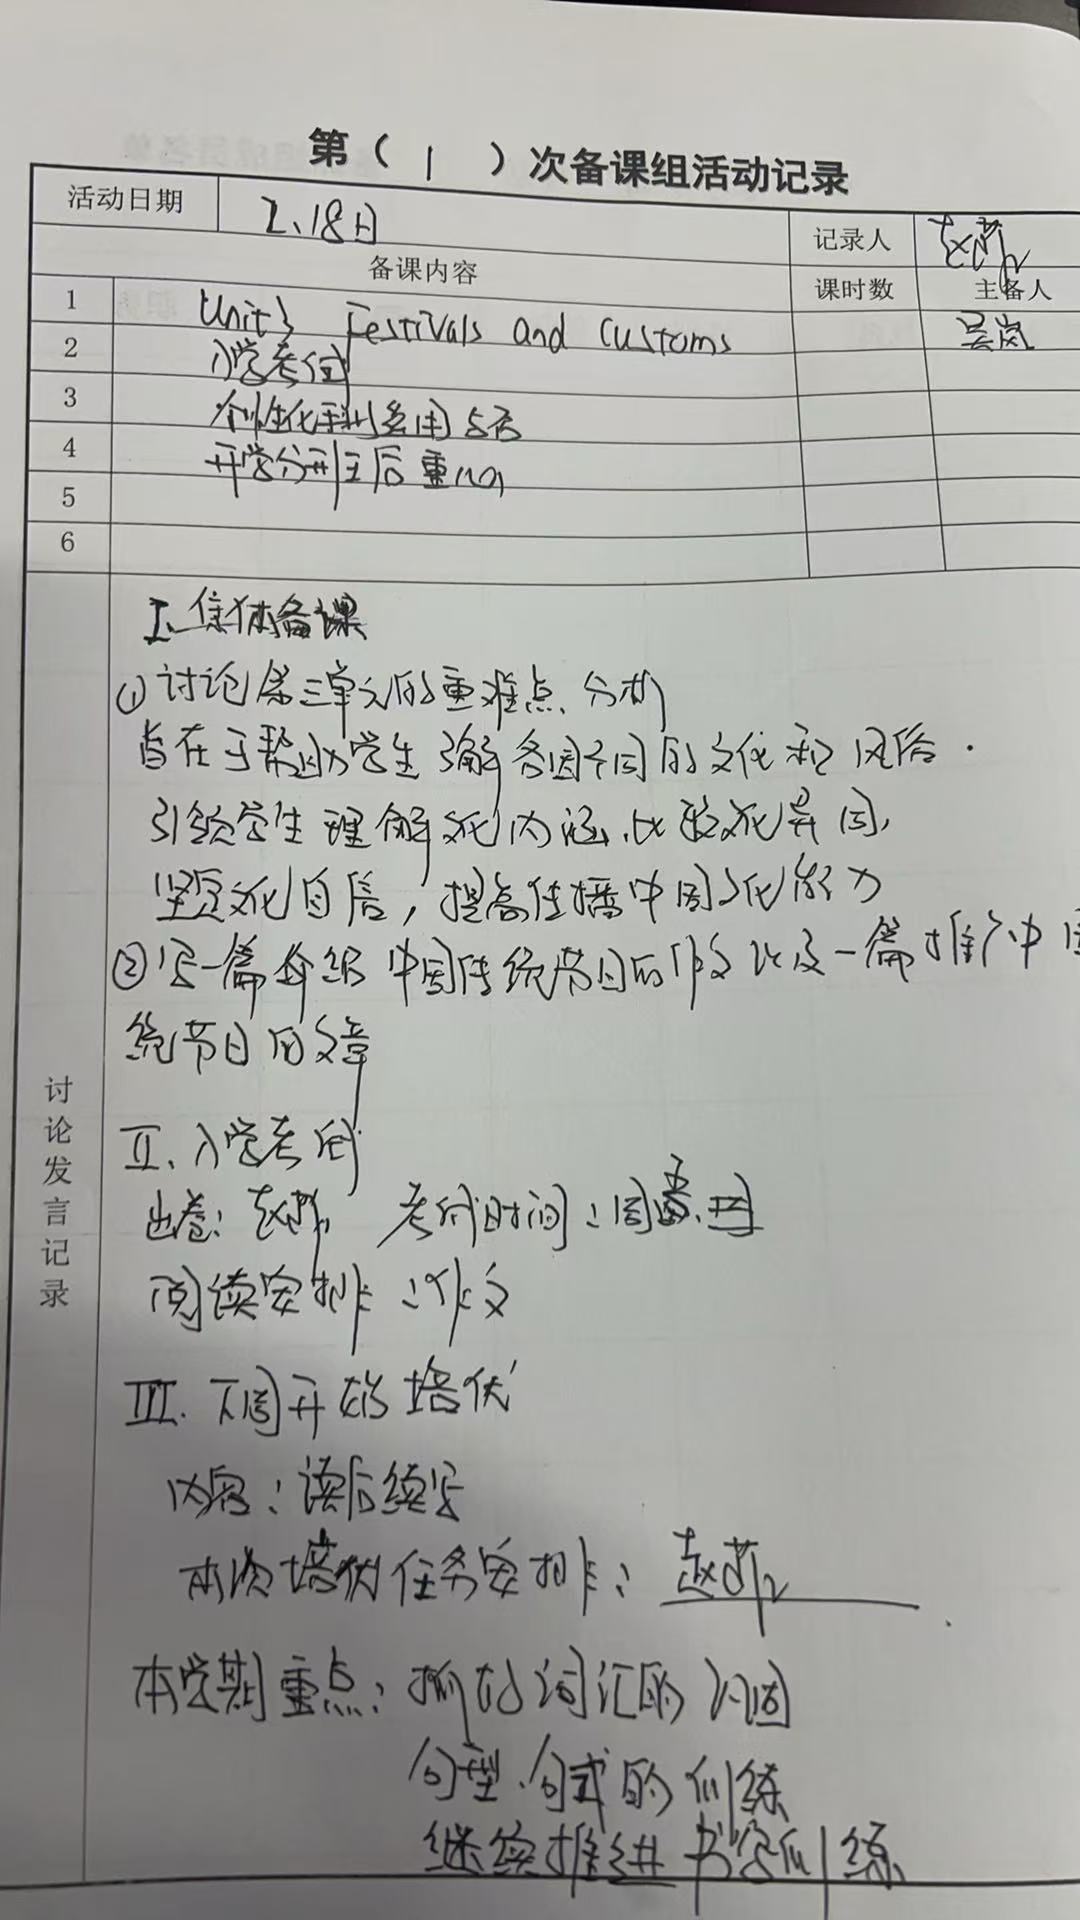 第（ 1 ）次备课组活动记录
活动日期 2.18日 记录人
备课内容 课时数 主备人
1 Unit3 Festivals and Customs 吴岚
2 入学考试
3 个性化手册使用与否
4 开学分班后重心
5
6
讨论发言记录
I、集体备课
① 讨论第三单元的重难点、分析
旨在于帮助学生了解各国不同的文化和风俗.
引领学生理解文化内涵、比较文化异同,
坚定文化自信，提高传播中国文化能力
②写一篇介绍中国传统节日的作文以及一篇推广中国
统节日的文章
II、入学考试
出卷: 考试时间:周
阅读安排:作文
III. 下周开始培优
内容:读后续写
本次培优任务安排:
本学期重点: 抓好词汇的巩固
句型、句式的训练
继续推进书写训练